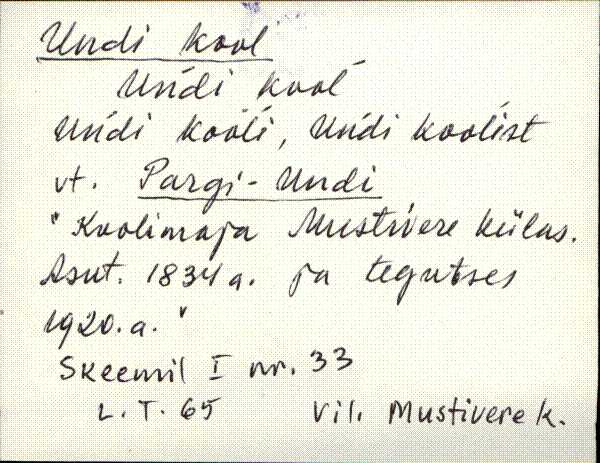 Undi kool
Uńdi kool
Uńdi kooli, Uńdi koolist
vt. Pargi-Undi
"Koolimaja Mustivere külas.
Asut. 1834 a. ja tegutses
1920.a."
Skeemil I nr. 33
L. T. 65 Vil. Mustivere k.